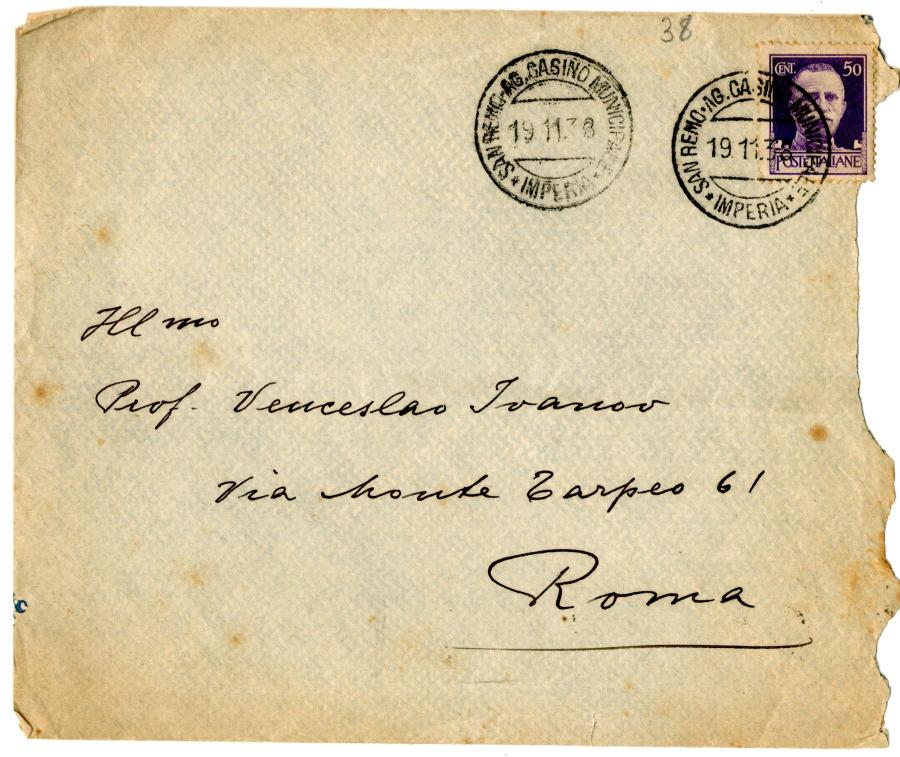 38
SAN REMO·AG.CASINO MUNICIPALE
19.11.38
* IMPERIA *
SAN REMO·AG.CASINO MUNICIPALE
19.11.38
* IMPERIA *
CENT. 50
POSTE ITALIANE
Illmo
Prof. Venceslao Ivanov
Via Monte Tarpeo 61
Roma